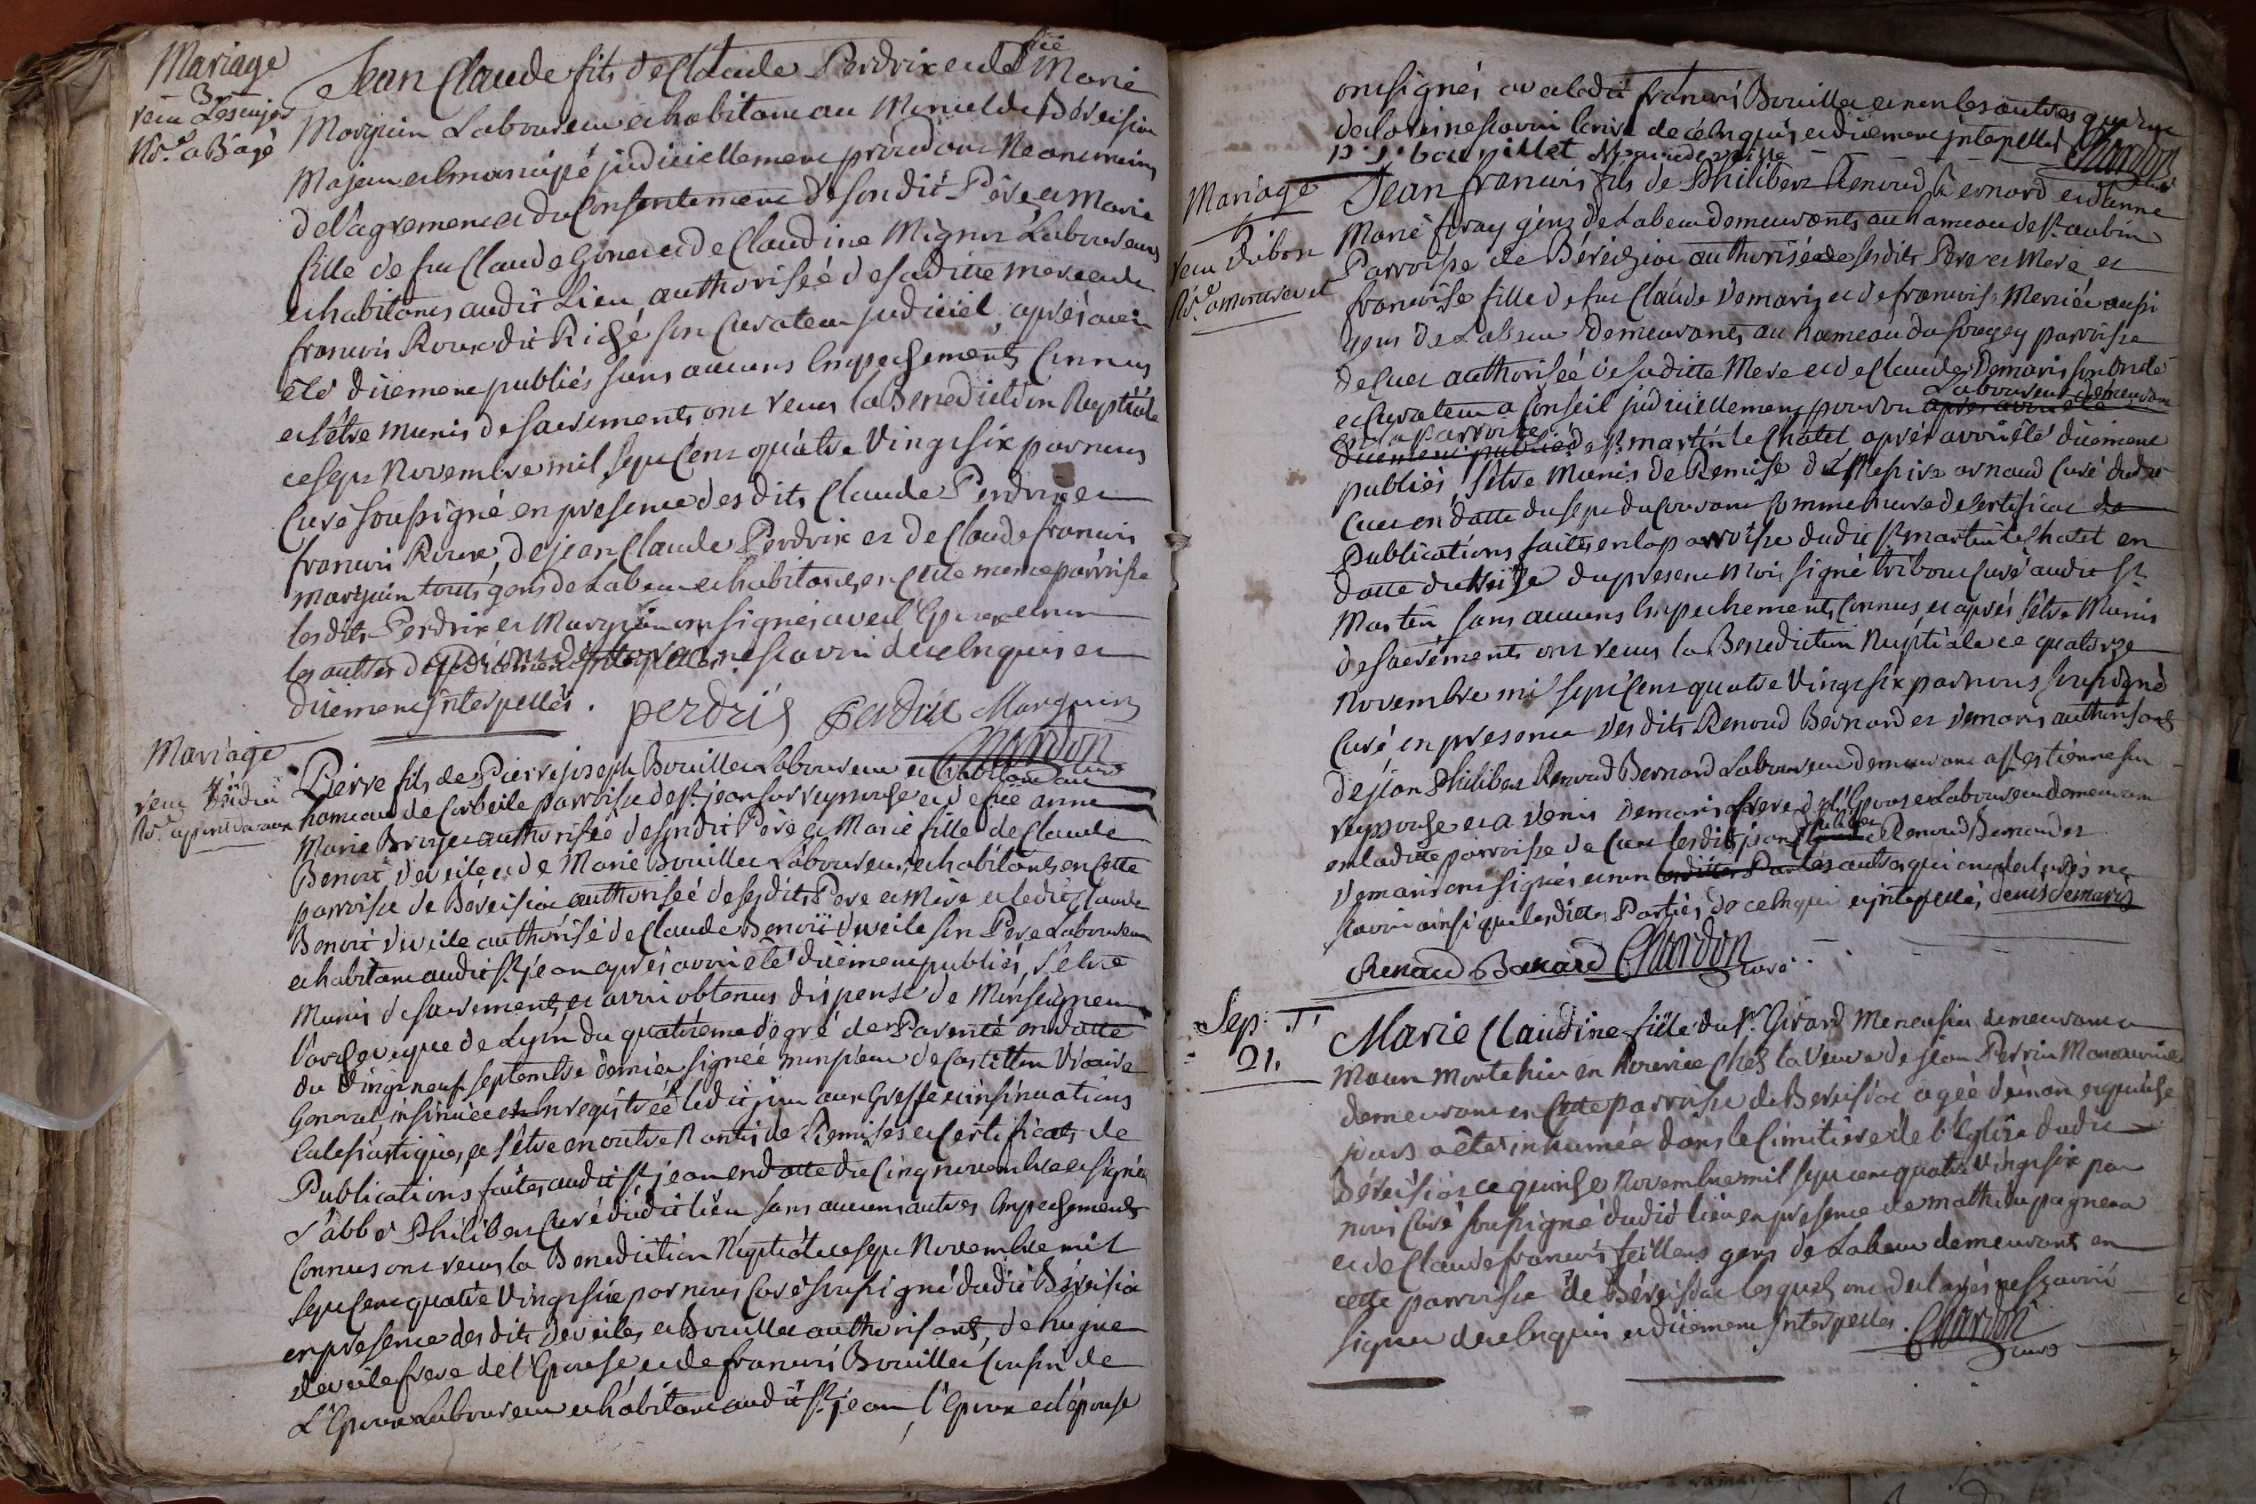 Mariage
Jean Claude fils de Claude Perdrix et de fiie Marie
Marguin Laboureur et habitant au Miniel de Béreisia
Majeur et Emancipé judiciellement
de l'agrement et du Consentement de son dit Père et Marie
fille de feu Claude Gonet et de Claudine Mignot Laboureurs
et habitants audit Lieu authorisée de sa ditte mere et de
francois Roux dit Riché son Curateur judiciel après avoir
été düement publiés sans aucuns Empechements Connus
et s'être munis de sacrements ont reçus la Benediction Nuptiale
ce sept Novembre mil sept Cent quatre Vingt six par nous
Curé soussigné en présence des dits Claude Perdrix et
francois Roux, de jean Claude Perdrix et de Claude francois
Marguin touts gens de Labeur et habitants en Cette meme parroisse
les dits Perdrix et Marguin ont signés avec l'Epoux et non
les autres ne scavoir de ce Enquis et
düement Interpellés. perdrix Perdrix Marguin
Chardon curé
Mariage
Pierre fils de Pierre joseph Bouillet Laboureur et habitant au
hameau de Corbeile parroisse de st jean sur reyssouse et de fiie anne
Marie Broyer authorisé de son dit Père et Marie fille de Claude
Benoit deveile et de Marie Bouillet Laboureurs et habitants en Cette
parroisse de Béreisia authorisée de ses dits Pere et Mere et ledit Claude
Benoit deveile authorisé de Claude Benoit deveile son Pere Laboureur
et habitant audit st jean après avoir été düement publiés, s'etre
Munis de sacrements et avoir obtenus dispense de Monseigneur
l'archeveque de Lyon du quatrieme degré de Parenté en datte
du Vingt neuf septembre dernier signée monsieur de Castillon Vicaire
General insinuée et Enregistrée ledit jour aux Greffe et insinuations
Eclesiastiques, et s'être en outre Nantis de Remises et Certificats de
Publications faites audit st jean en datte du Cinq novembre et signée
l'abbé Philibert Curé dudit lieu sans aucuns autres Empechements
Connus ont reçus la Benediction Nuptiale ce sept Novembre mil
sept Cent quatre Vingt six par nous Curé soussigné dudit Béreisia
en presence des dits deveiles et Bouillet authorisants, de hugue
deveile frere de l'Epouse et de francois Bouillet Cousin de
L'Epoux Laboureur et habitant audit st jean, l'Epoux et l'épouse
ont signés avec ledit francois Bouillet et non les autres qui ont
declarés ne scavoir Ecrire de ce Enquis et düement interpellés Chardon
bouillet
Mariage
Jean francois fils de Philibert Renoud Bernard et d'anne
Marie feray gens de Labeur demeurants au hameau de st aubin
Parroisse de Béreizia authorisé de ses dits Pere et Mere et
francoise fille de feu Claude demaris et de francoise Merciér aussi
gens de Labeur demeurants au hameau du fougey parroisse
de Cuet authorisée de sa ditte Mere et de Claude Demaris son oncle
et Curateur a Conseil judiciellement pourvu Laboureur demeurant
en la parroisse de st martin le Chatel après avoir été düement
publiés s'etre Munis de Remise de Messire arnaud Curé dudit
Cuet en datte du sept du Courant comme encore de Certificat de
Publications faites en la parroisse dudit st martin le Chatel en
datte du treize du present Mois, signé tribout Curé audit st
Martin sans aucuns Empechements Connus, et après s'être Munis
de sacrements ont reçus la Benediction Nuptiale ce quatorze
Novembre mil sept Cent quatre Vingt six par nous soussigné
Curé en presence des dits Renoud Bernard et demaris authorisants
de jean Philibert Renoud Bernard Laboureur demeurant a st etienne sur
reyssouse et a denis demaris frere de l'Epouse Laboureur demeurant
en la ditte parroisse de Cuet lesdits jean philibert Renoud Bernard et
demaris ont signés et non les autres qui ont declarés ne
scavoir ainsi que lesdittes Parties de ce Enquis et interpellés denis demaris
Renaud Bernard Chardon curé
Sep. re
21.
Marie Claudine fille du Sr Girard Menuisier demeurant a
Macon morte hier en Nourrice Chez la Veuve de jean Perrin Manouvrier
demeurant en Cette parroisse de Bereisia agée d'un an et quinze
jours a été inhumée dans le Cimitiere de l'Eglise dudit
Béreisia ce quinze Novembre mil sept cent quatre Vingt six par
nous Curé soussigné dudit lieu en presence de mathieu pagneux
et de Claude francois feillens gens de Labeur demeurants en
cette parroisse de Béreisia lesquels ont declarés ne scavoir
signer de ce Enquis et düement Interpellés. Chardon
curé